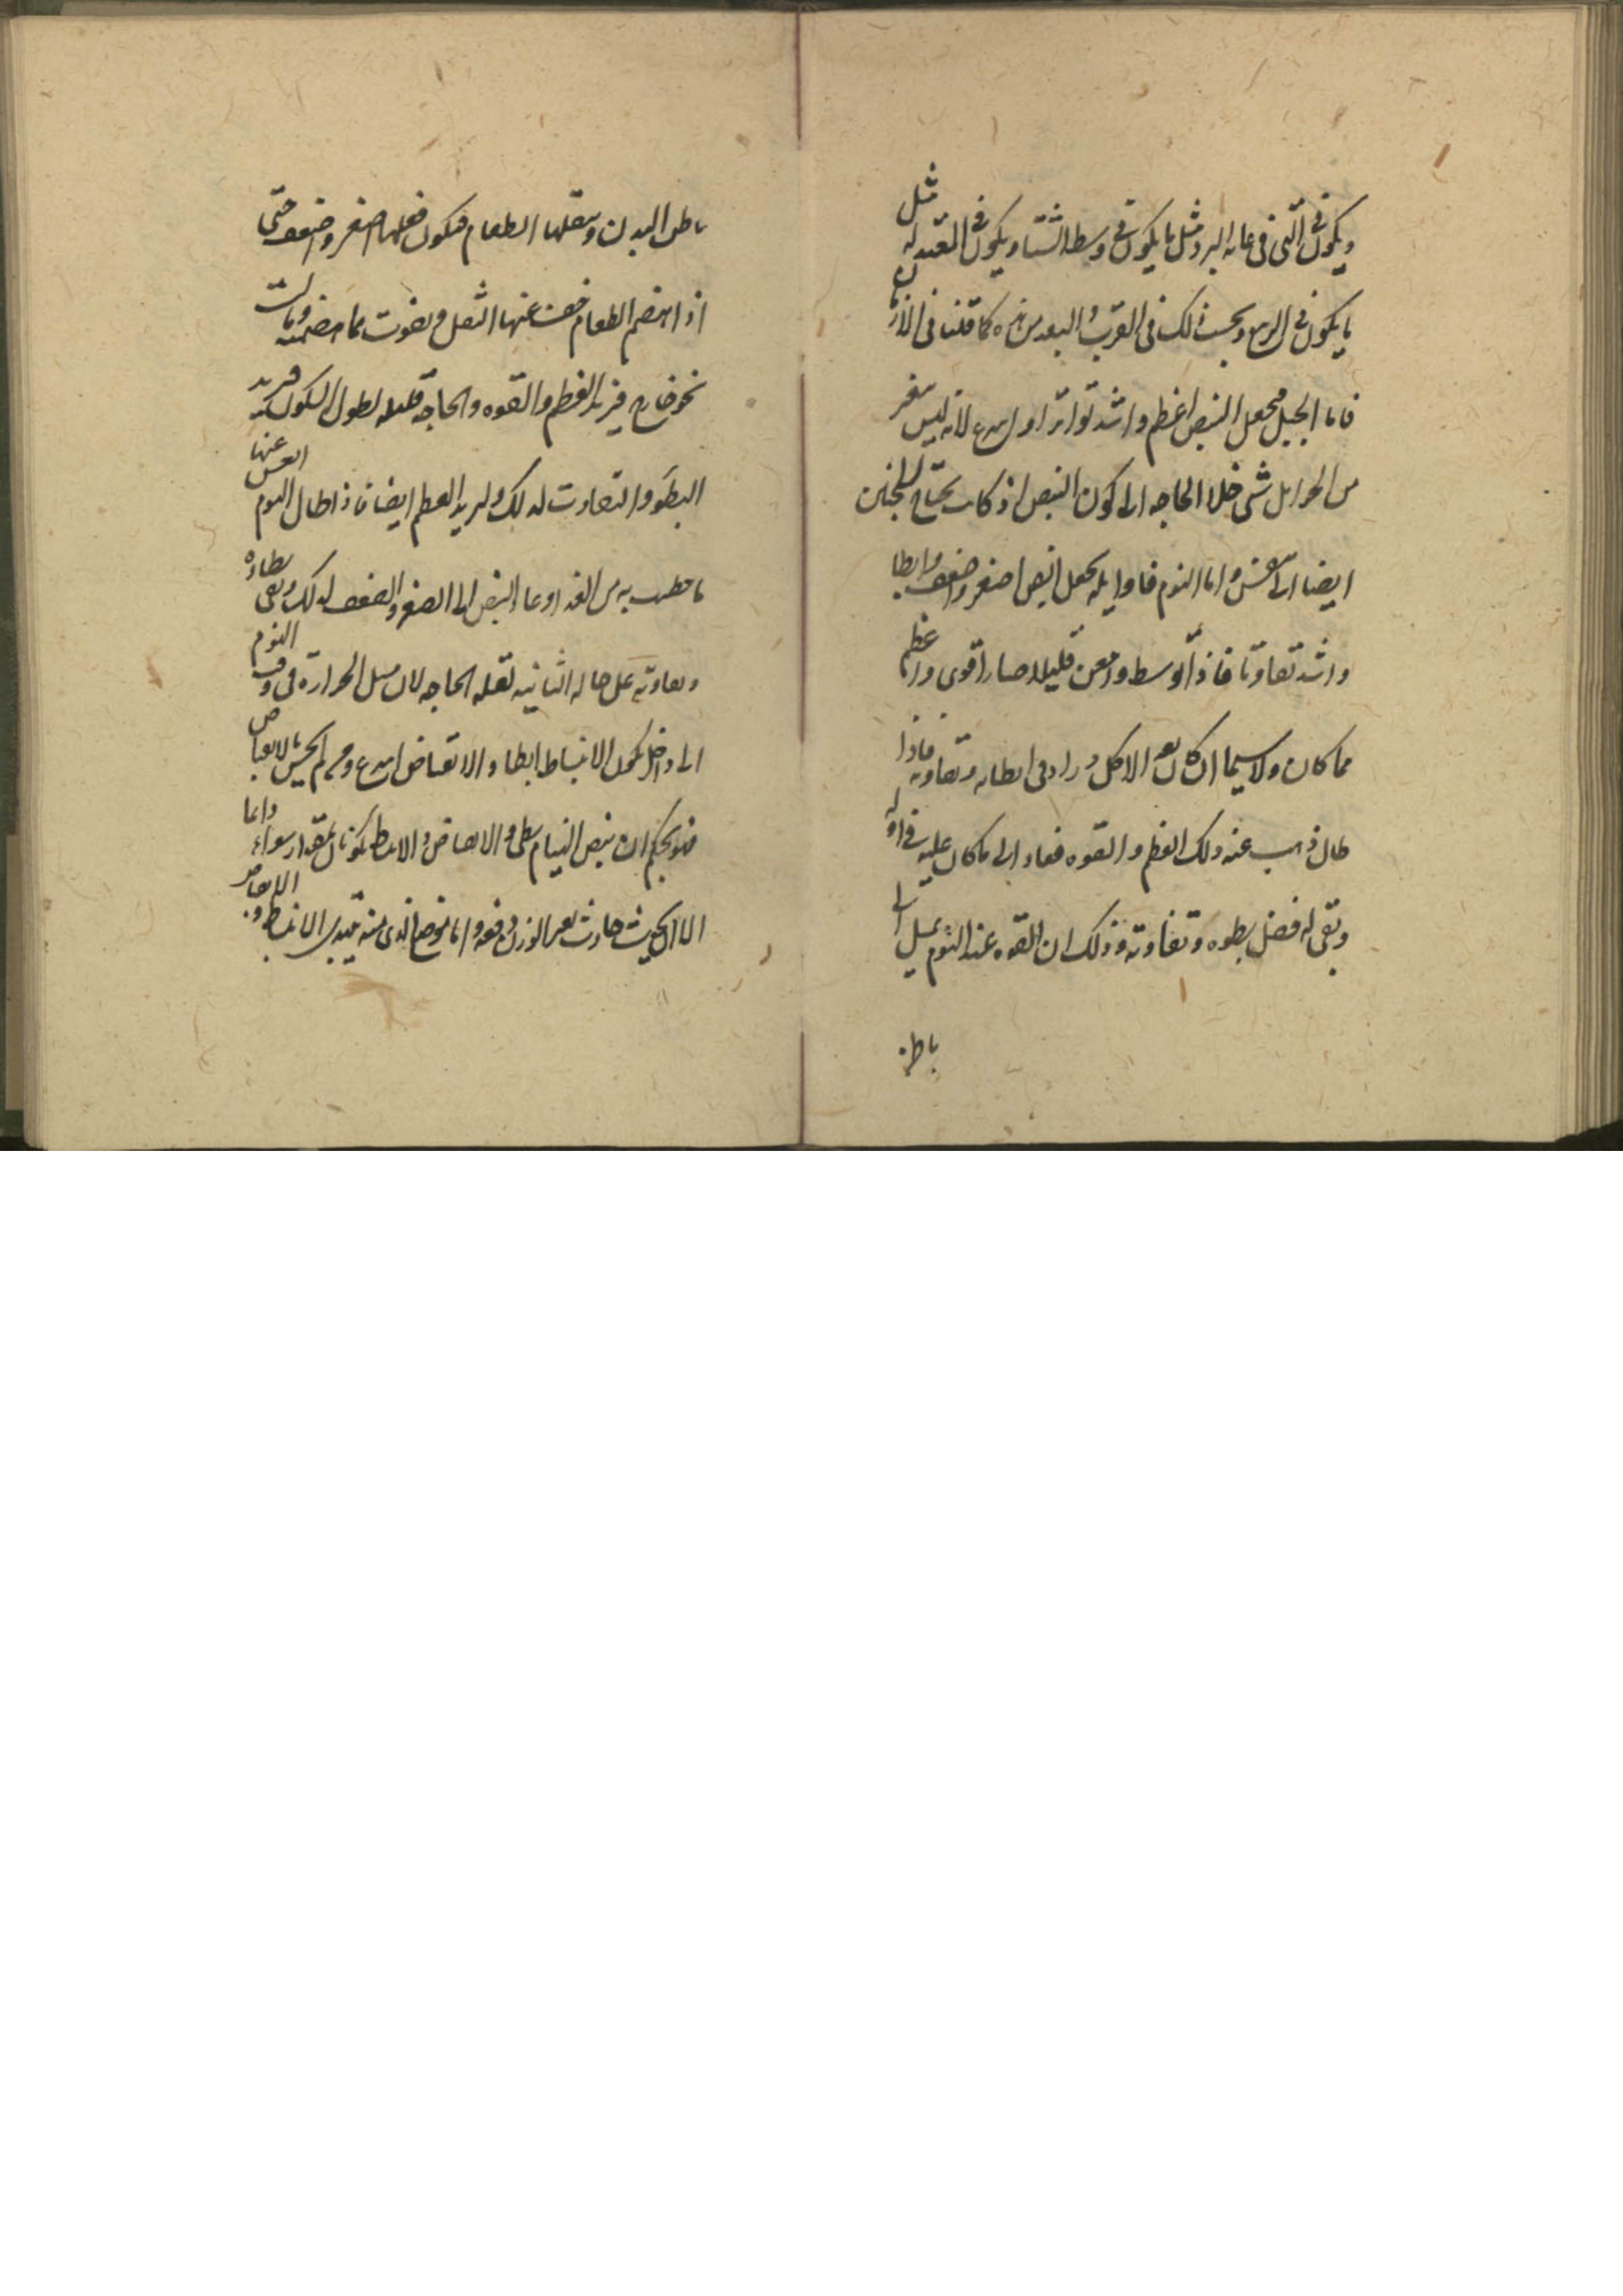 ويكون في التى فى غايه البرد مثل ما يكون في وسط الشتا ويكون في المعتدله مثل
ما يكون في الربيع وبحسب ذلك فى القرب والبعد من هذه كما قلنا فى الازمان
فاما الحبل فيجعل النبض اعظم واشد تواترا واسرع لانه ليس يتغير
من الحوامل شى خلا الحاجه الى كون النبض اذ كانت تحتاج للجنين
ايضا الى تنفس واما النوم فاوايله يجعل النبض اصغر واضعف وابطا
واشد تفاوتا فاذا توسط وامعن قليلا صار اقوى واعظم
مما كان ولا سيما ان كان بعد الاكل وزاد فى ابطائه وتفاوته فاذا
طال ذهب عنه ذلك العظم والقوه فعاد الى ما كان عليه في اوله
وبقى له فضل بطوه وتفاوته وذلك ان القوه عند النوم تميل الى
باطن
باطن البدن ويثقلها الطعام فيكون فعلها اصغر واضعف حتى
اذا انهضم الطعام خف عنها الثقل وتقوت مما هضمته ومالت
نحو خارج فيزيد العظم والقوه والحاجه قليله لطول السكون فيزيد
البطو والتفاوت لذلك وليزيد العظم ايضا فاذا طال النوم
ما خصب به من الغذا وعاد النبض الى الصغر والضعف لذلك وبقى بطاؤه
وتفاوته على حاله الثانيه لقله الحاجه لان ميل الحراره فى وقت النوم
الى داخل يجعل الانبساط ابطا والانقباض اسرع ومن لم يحس بالانقباض
فهو يحكم ان نبض النيام بطى والانقباض والانبساط يكونان بمقدار سواء دايما
الا ان يحدث حادث يغير الوزن دفعه واما الموضع الذى منه يبتدى الانبساط و